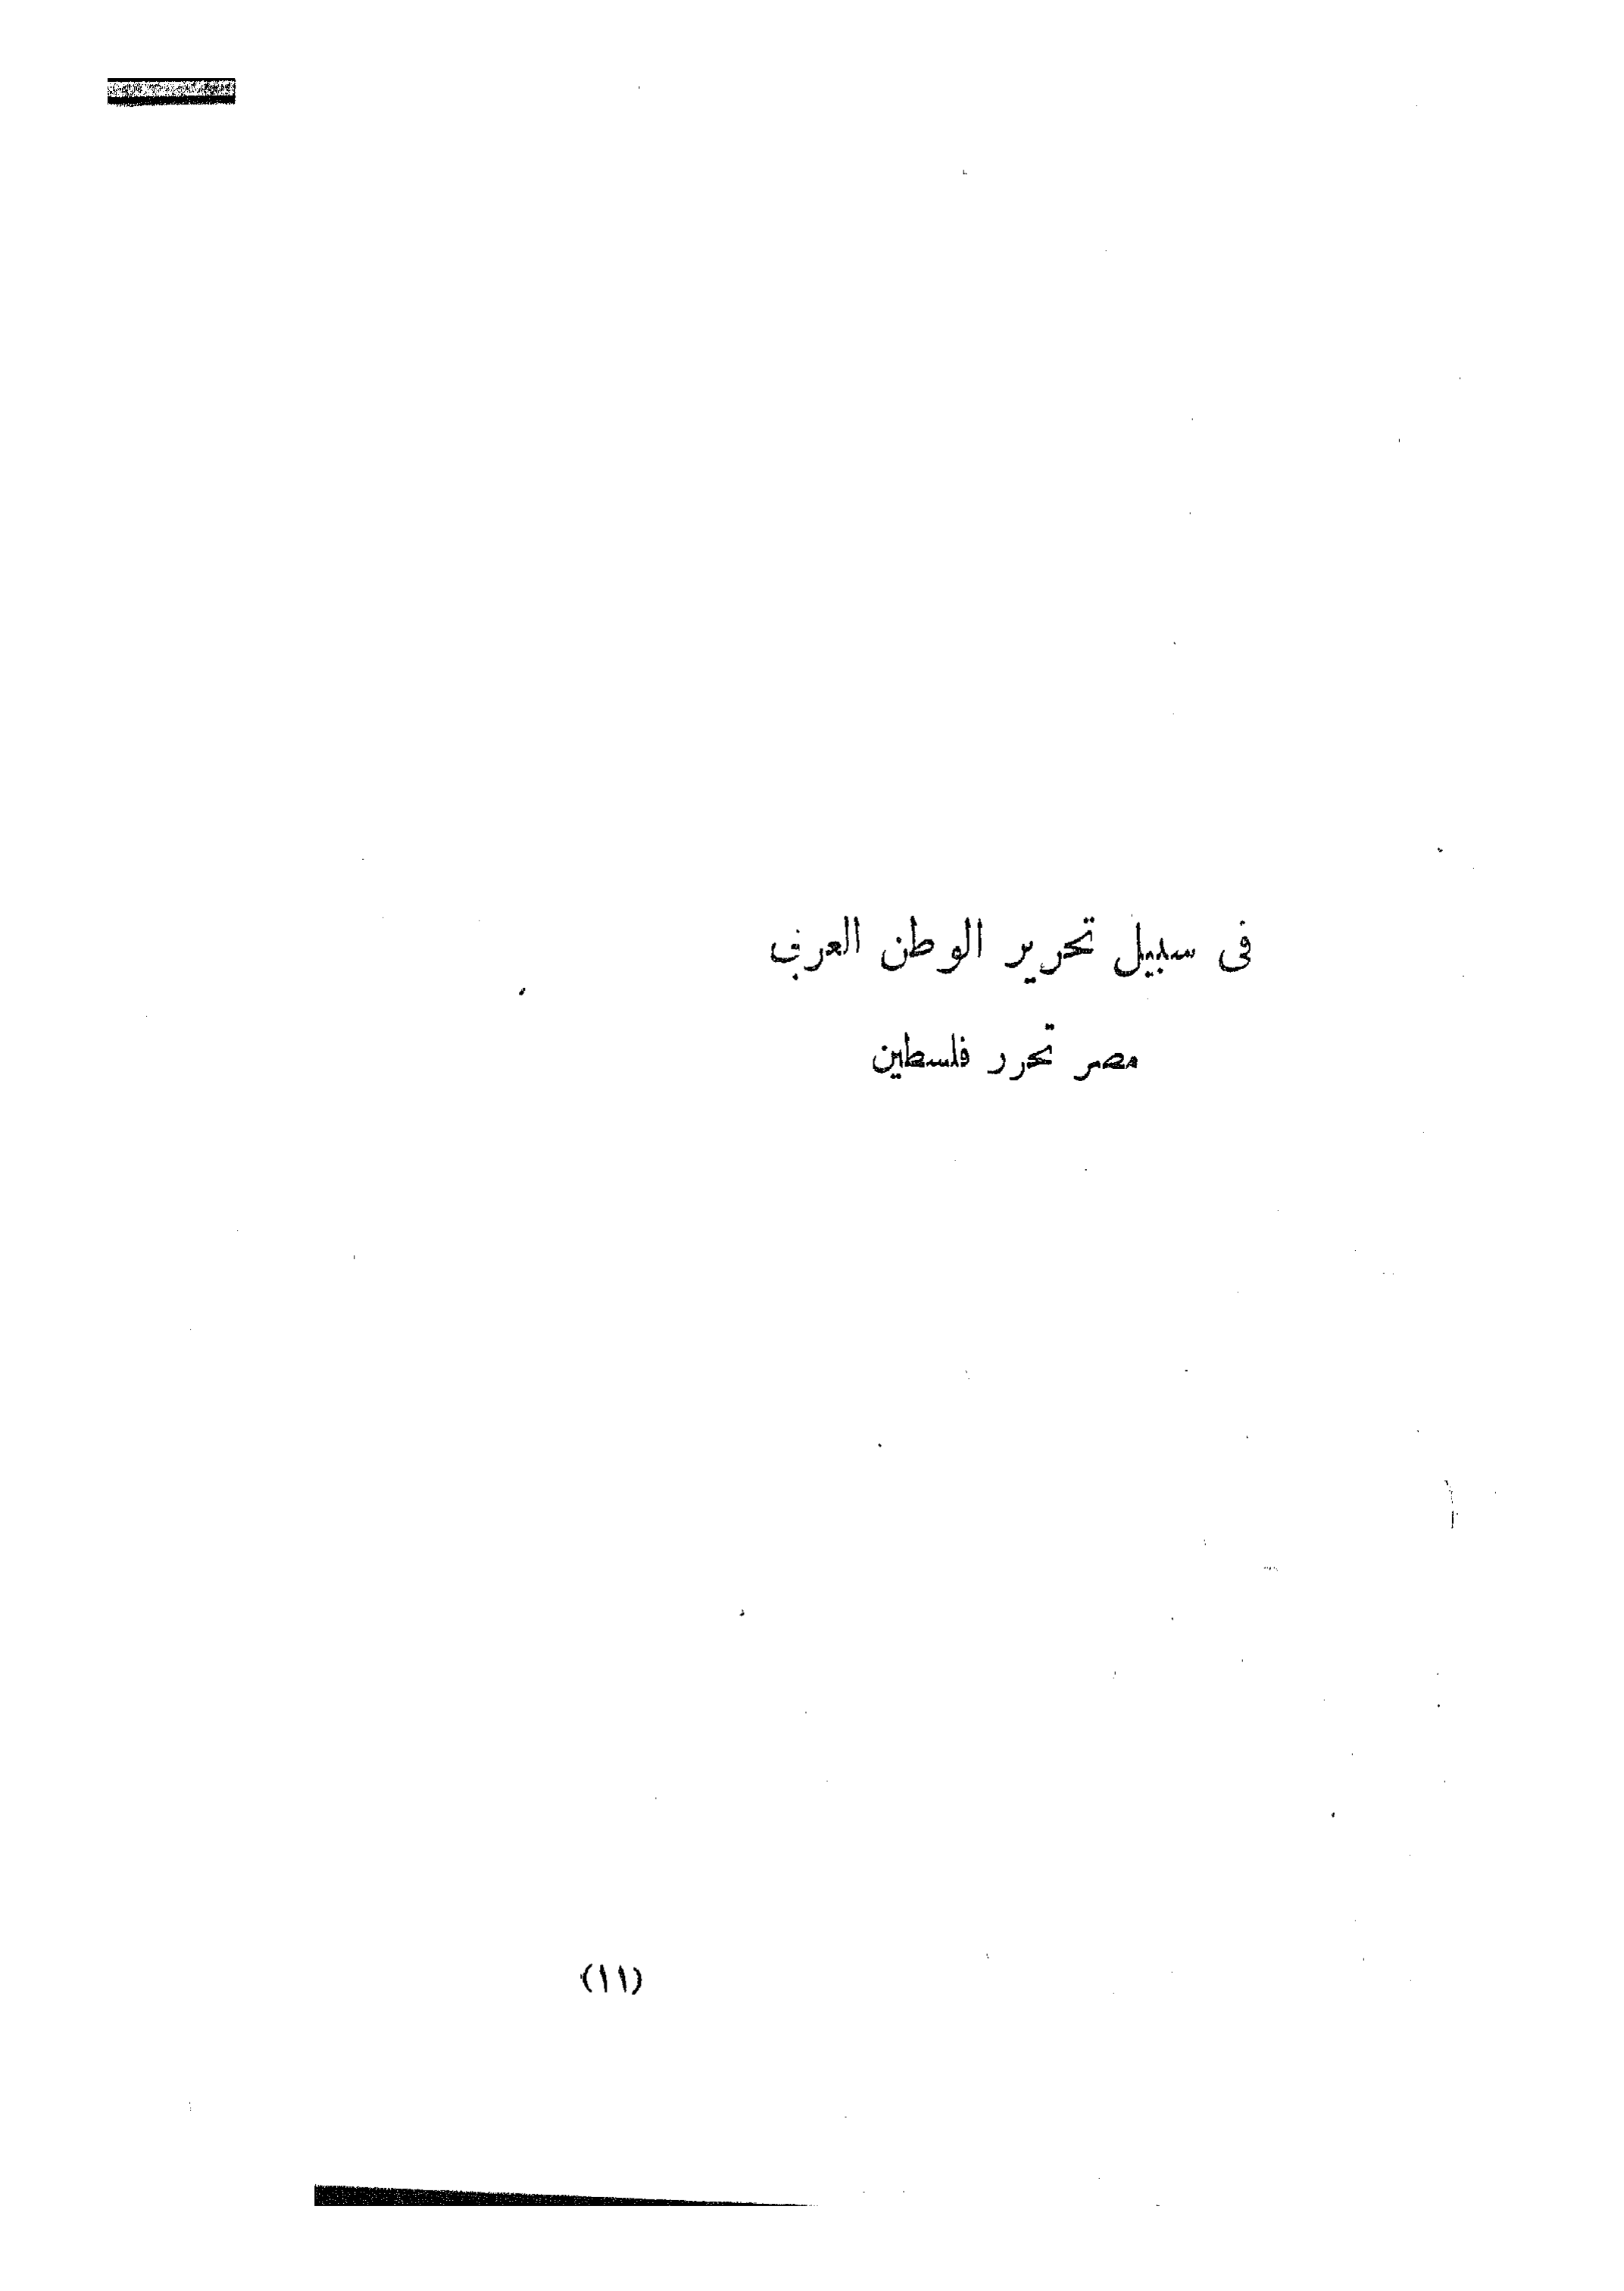 فى سبيل تحرير الوطن العربى
مصر تحرر فلسطين
(١١)